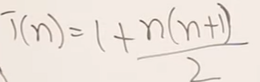 T(n) = 1 + n(n+1)/2